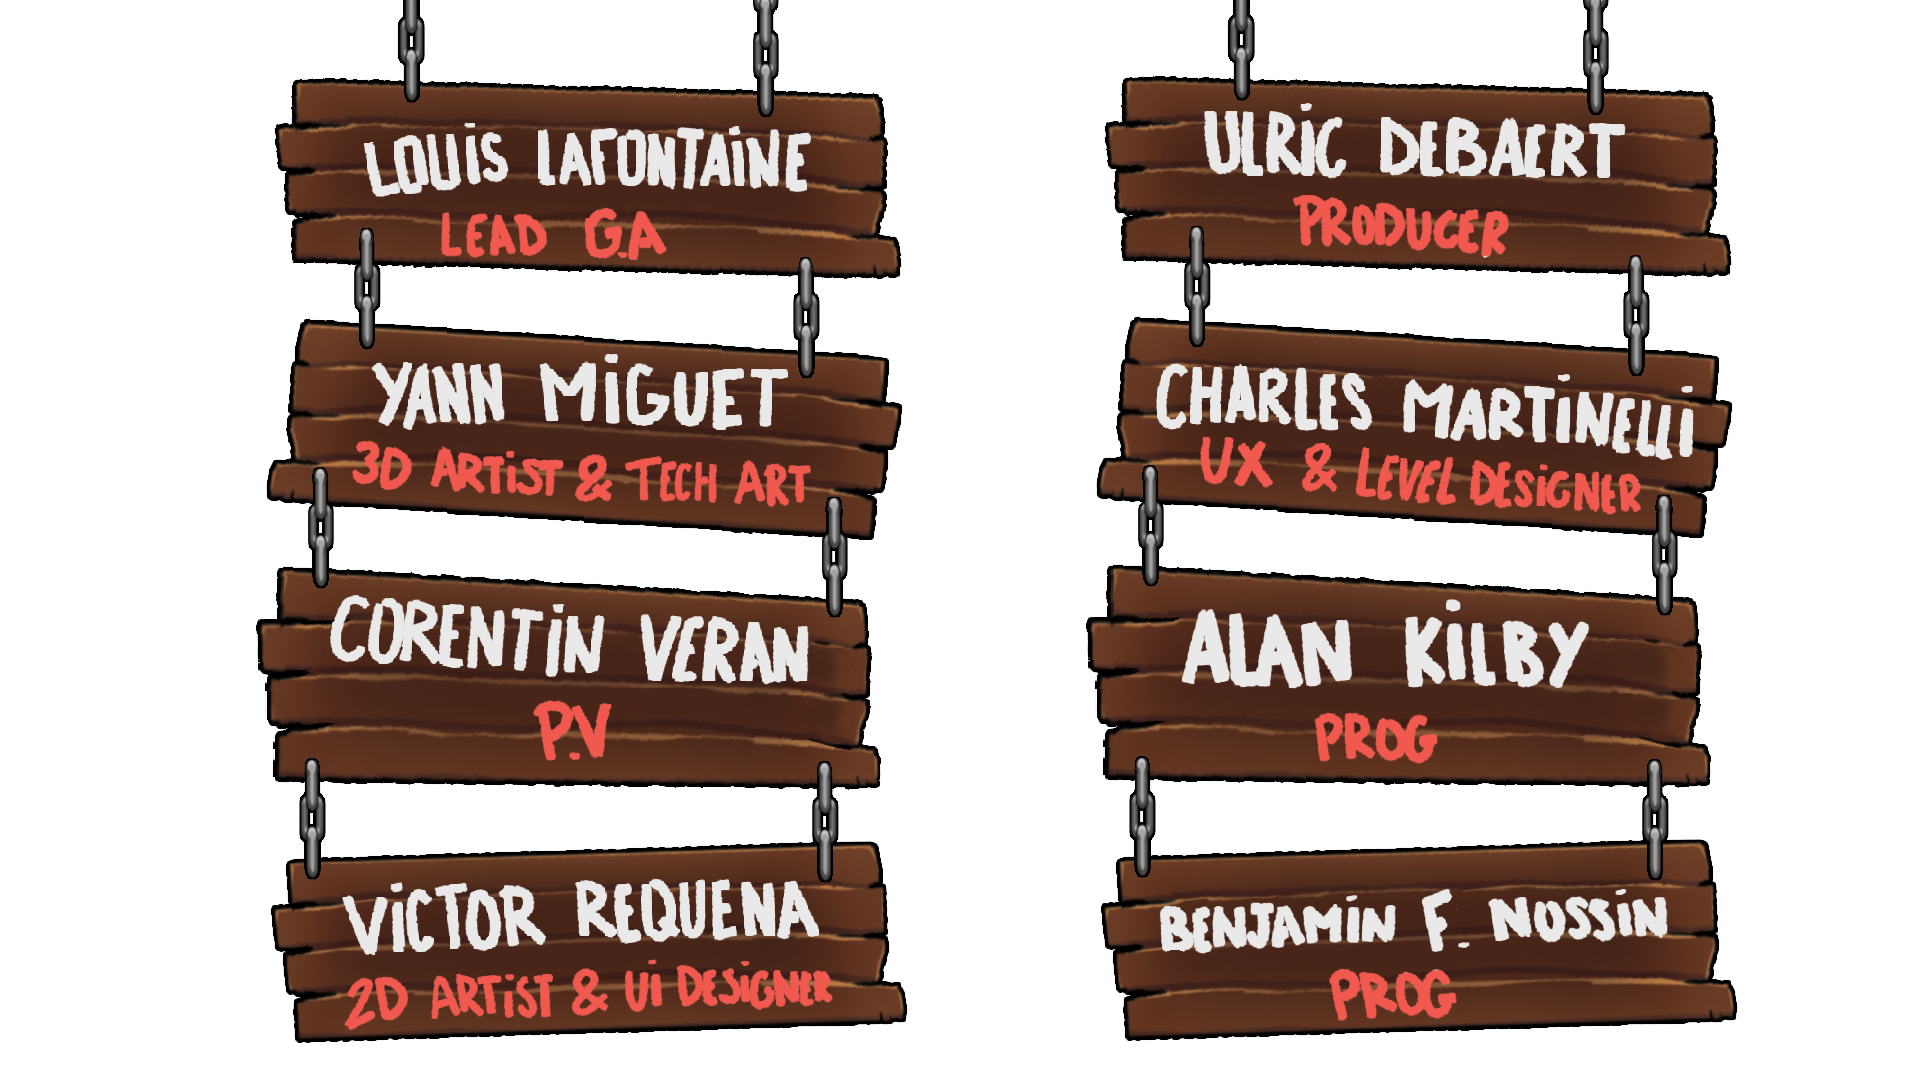 LOUiS LAFONTAiNE
LEAD G.A
YANN MiGUET
3D ARTiST & TECH ART
CORENTiN VERAN
P.V
ViCTOR REQUENA
2D ARTiST & Ui DESiGNER
ULRiC DEBAERT
PRODUCER
CHARLES MARTiNELLi
UX & LEVEL DESiGNER
ALAN KiLBY
PROG
BENJAMiN F. NOSSiN
PROG